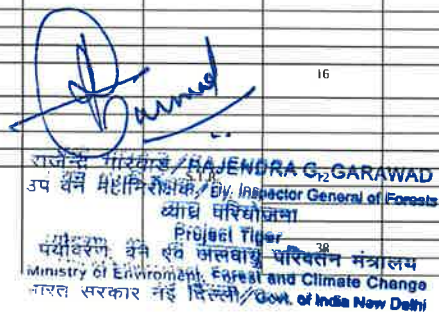 16
राजेन्द्र गारवाड / RAJENDRA G. GARAWAD
उप वन महानिरीक्षक / Dy. Inspector General of Forests
व्याघ्र परियोजना
Project Tiger
38
पर्यावरण, वन एवं जलवायु परिवर्तन मंत्रालय
Ministry of Enviroment, Forest and Climate Change
भारत सरकार नई दिल्ली / Govt. of India New Delhi